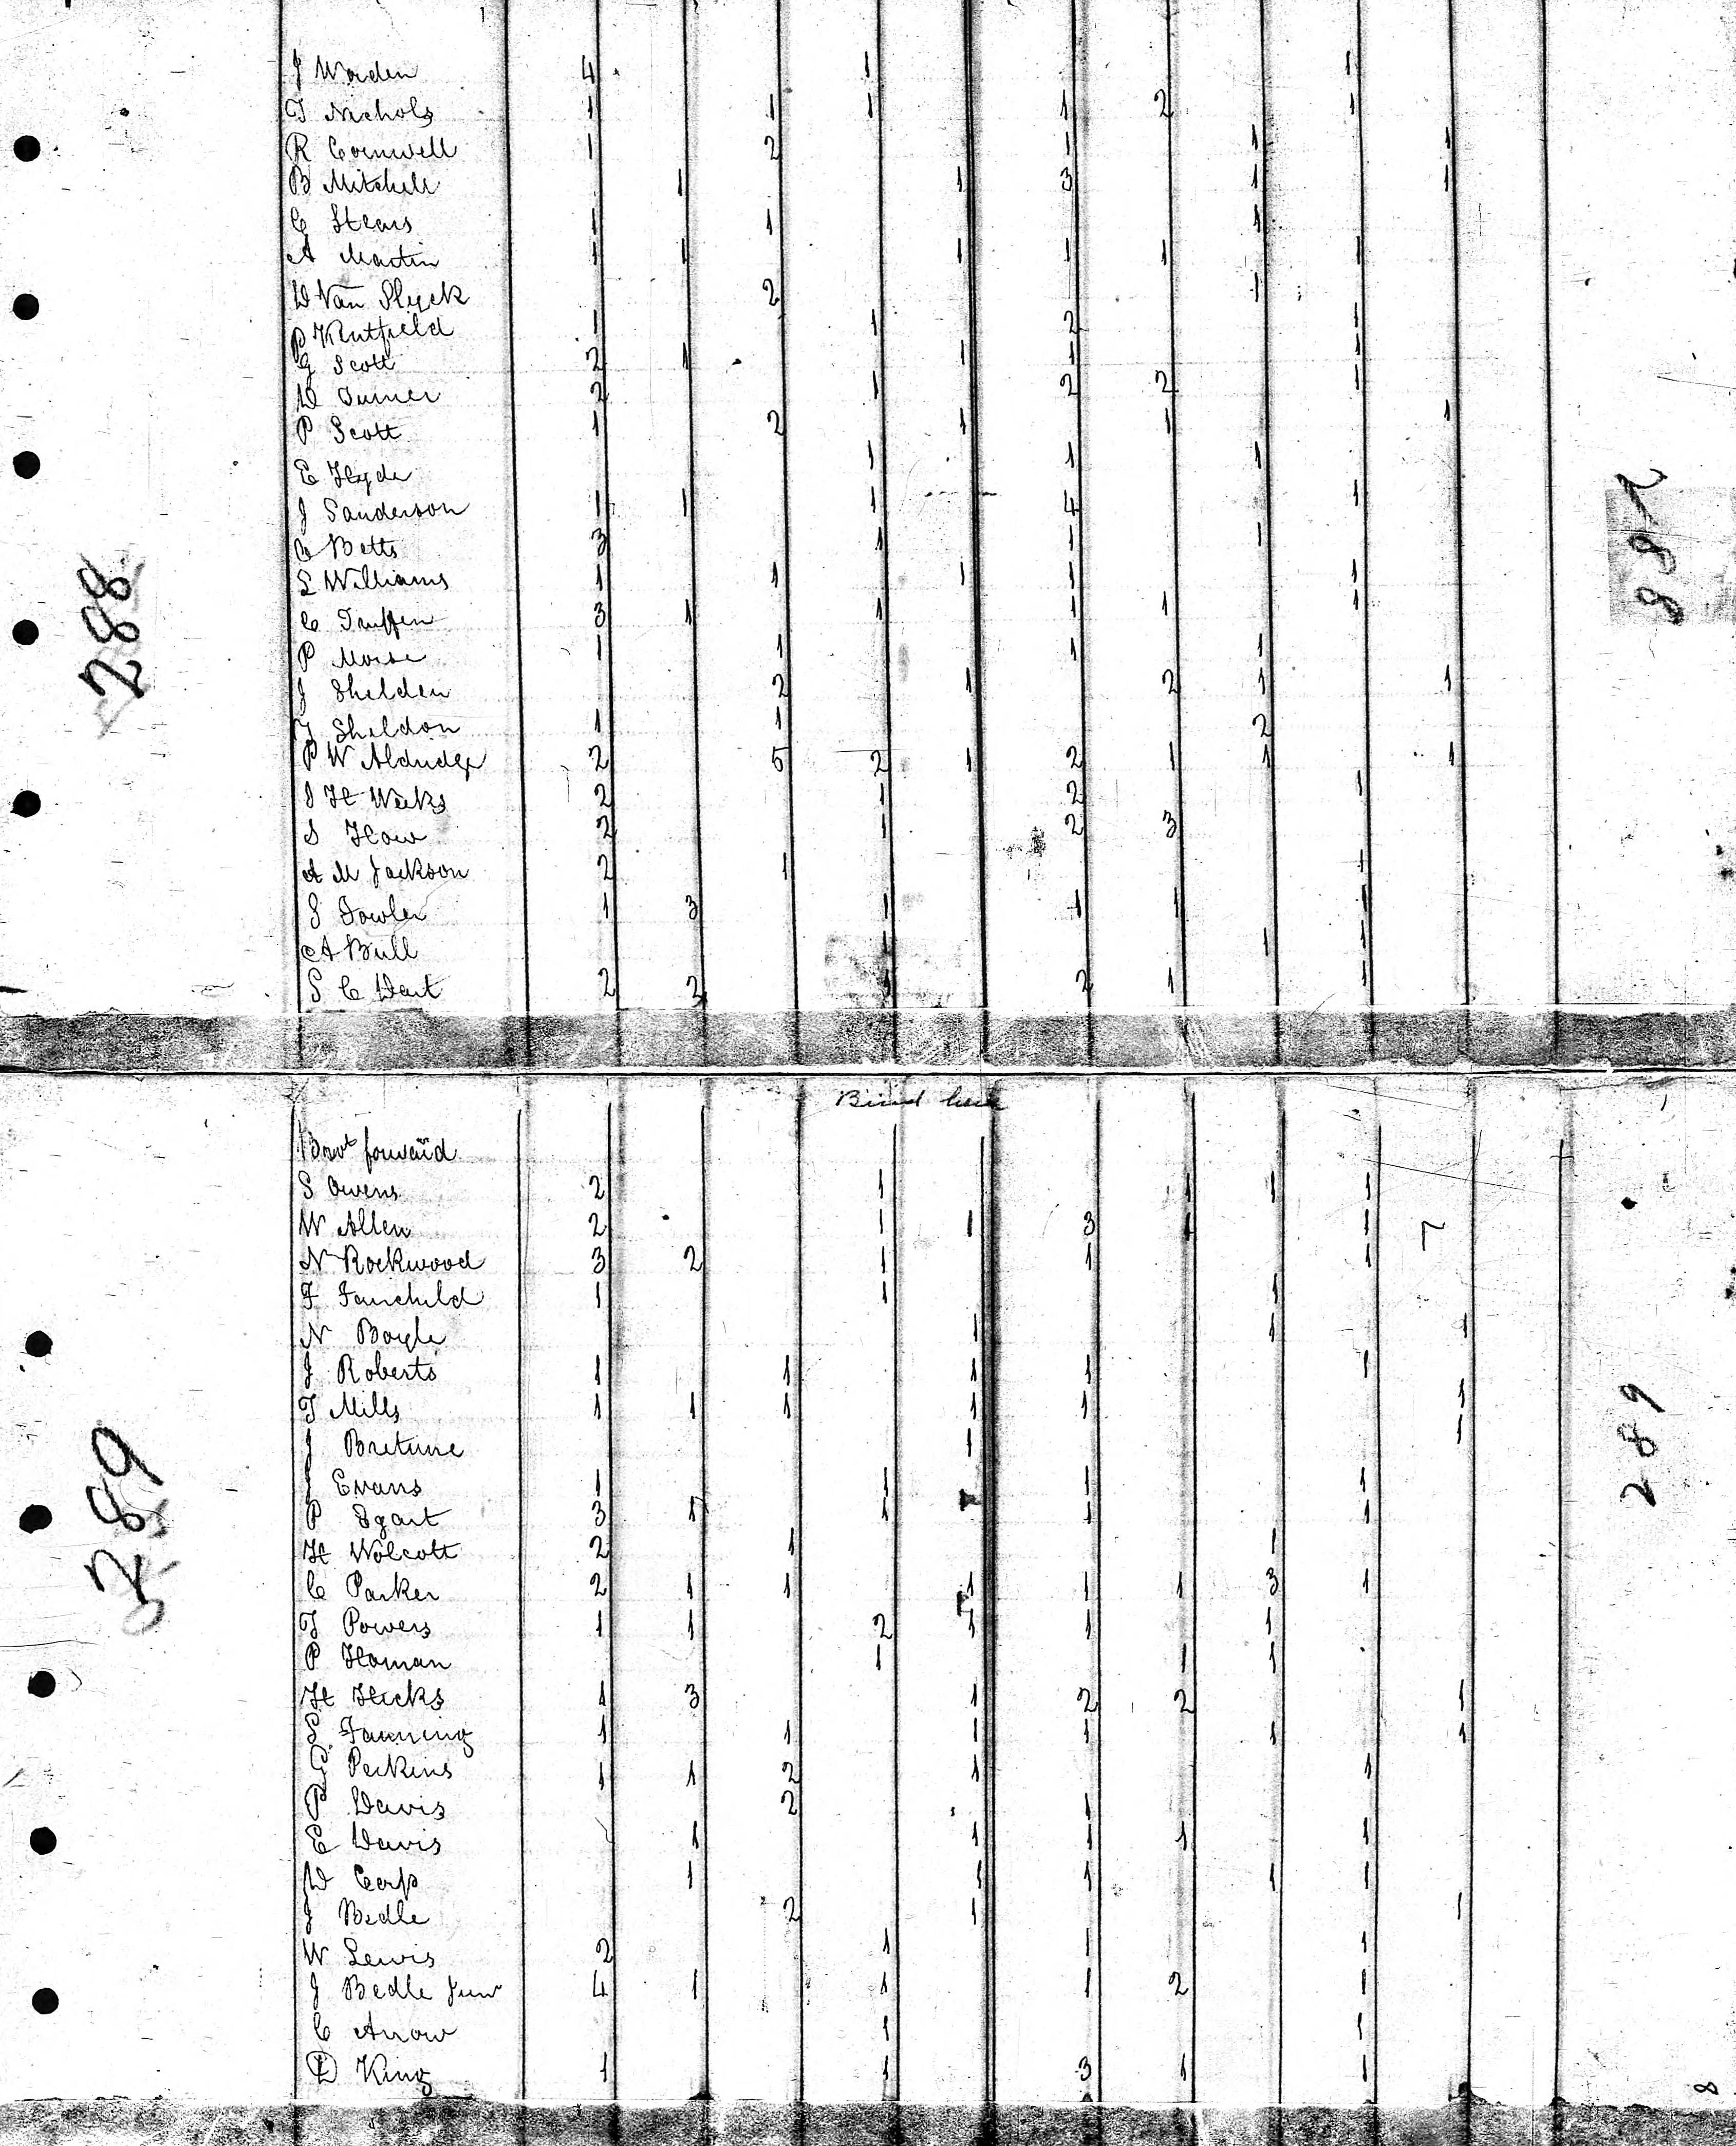 J Worden 4 1 1
T Nichols 1 1 1 1 2 1
R Cornwell 1 2 1 1 1
B Mitchell 1 1 3 1 1
C Stears 1 1 1
A Martin 1 1 1 1 1 1
D Van Slyck 2 1
P Kentfield 1 1 2 1
G Scott 2 1 1 1 1
D Turner 2 1 2 2 1
P Scott 1 2 1 1 1
E Hyde 1 1 1
J Sanderson 1 1 1 4 1
C Betts 3 1 1 1
S Williams 1 1 1 1 1
C Truffen 3 1 1 1 1 1
P Morse 1 1 1 1
J Shelden 2 1 2 1 1
Sheldon 1 1 2
P W Aldridge 2 5 2 1 2 1 1 1
J H Weeks 2 1 2 1
S How 2 1 2 3
A M Jackson 2 1 1
S Fowler 1 3 1 1 1 1
A Bull 1 1 1
S C Dart 2 2 1 2 1 1
288 288
Bind here
Brot forward
S Owens 2 1 1 1 1
W Allen 2 1 1 3 1 1
N Rockwood 3 2 1 1 1
F Fairchild 1 1 1
N Boyle 1 1 1
J Roberts 1 1 1 1 1
T Mills 1 1 1 1 1 1
J Bretune 1 1
J Evans 1 1 1 1
P Sgart 3 1 1 1 1
H Wolcott 2 1 1
C Parker 2 1 1 1 1 1 3 1
T Powers 1 1 2 1 1 1
P Homan 1 1 1
H Hicks 1 3 1 2 2 1
S Fanning 1 1 1 1 1 1
C Perkins 1 1 2 1 1
P Davis 2 1
E Davis 1 1 1 1 1
D Corp 1 1 1 1 1
J Bedle 2 1 1
W Lewis 2 1 1 1
J Bedle Junr 4 1 1 1 2 1
C Arrow 1 1
D King 1 1 3 1 1
289 289
8